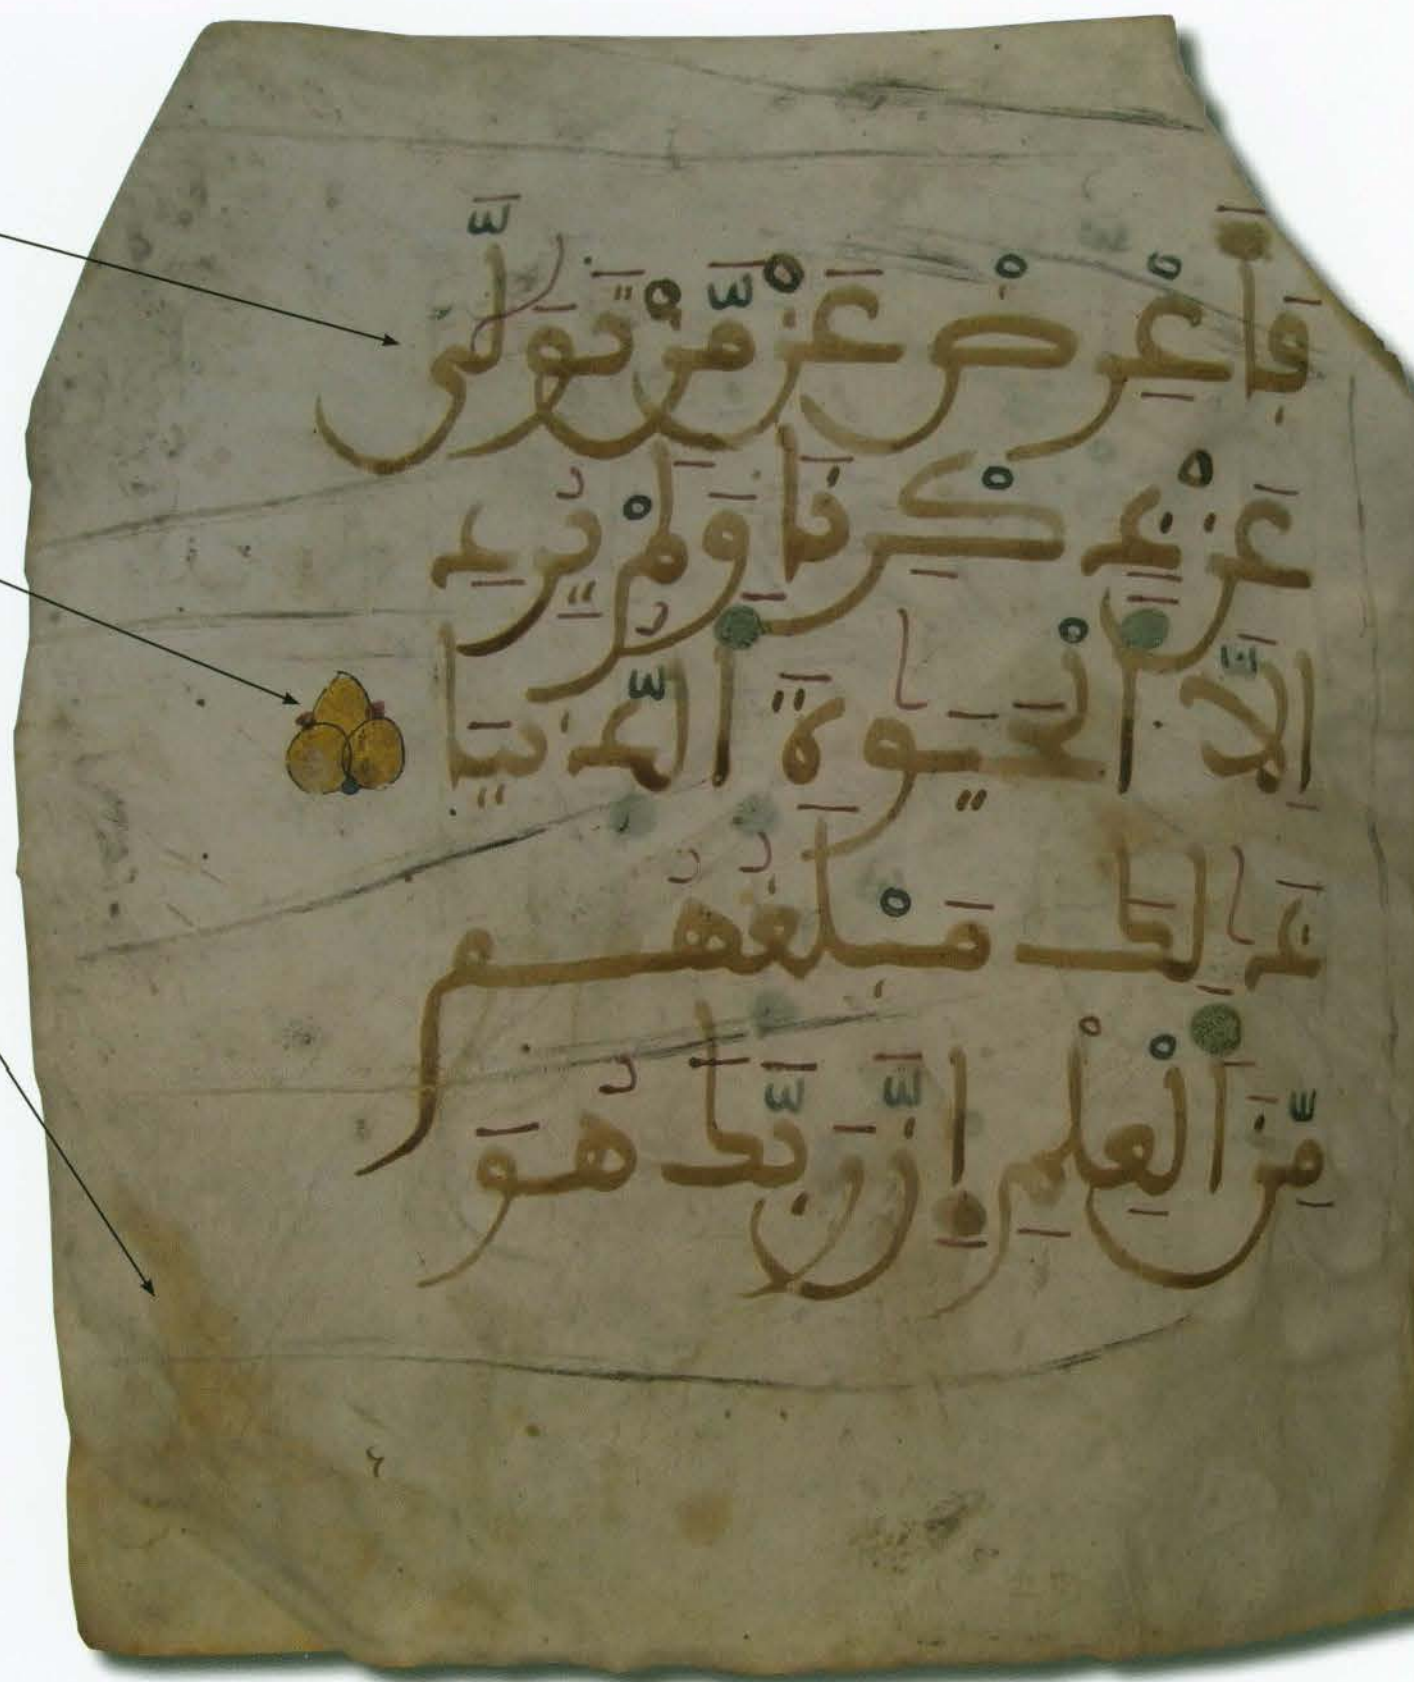 فَأَعْرِضْ عَن مَّن تَوَلَّىٰ
عَن ذِكْرِنَا وَلَمْ يُرِدْ
إِلَّا ٱلْحَيَوٰةَ ٱلدُّنْيَا
ذَٰلِكَ مَبْلَغُهُم
مِّنَ ٱلْعِلْمِ إِنَّ رَبَّكَ هُوَ